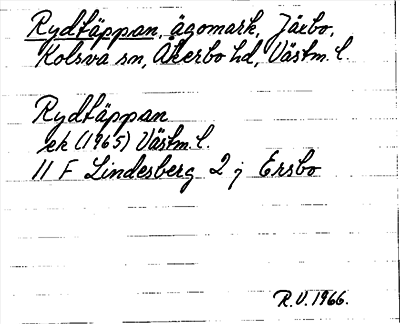 Rydtäppan, ägomark, Järbo,
Kolsva sn, Åkerbo hd, Västm. l.
Rydtäppan
ek (1965) Västm. l.
11 F Lindesberg 2 j Ersbo
R.V. 1966.